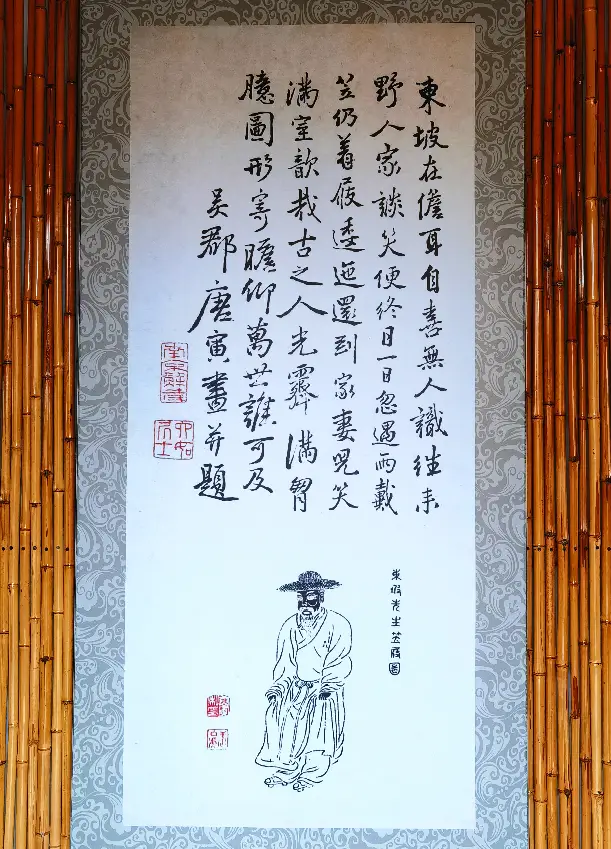 東坡在儋耳自喜無人識往来
野人家談笑便終日一日忽遇雨戴
笠仍着屐逶迤還到家妻兒笑
滿室歆哉古之人光霽滿胷
臆圖形寄瞻仰萬世誰可及
吴郡唐寅畫并題
六如居士
東坡先生笠屐圖